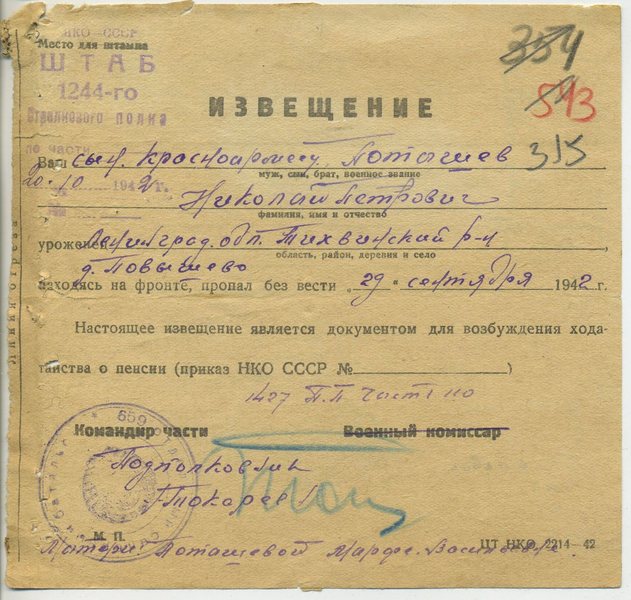 НКО СССР
Место для штампа
ШТАБ
1244-го
Стрелкового полка
по части
20. 10 1942 г.
354
543
315
ИЗВЕЩЕНИЕ
Ваш сын, Красноармеец, Поташев
муж, сын, брат, военное звание
Николай Петрович
фамилия, имя и отчество
уроженец Ленинград. обл. Тихвинский р-н
область, район, деревня и село
д. Повышево
находясь на фронте, пропал без вести „29" сентября 1942 г.
Настоящее извещение является документом для возбуждения хода-
тайства о пенсии (приказ НКО СССР № )
1427 П.П часть 110
Командир части Военный комиссар
Подполковник
Токарев
М. П.
Матери Поташевой Марфе Васильевне
ЦТ НКО 2214—42
Линия отреза
659